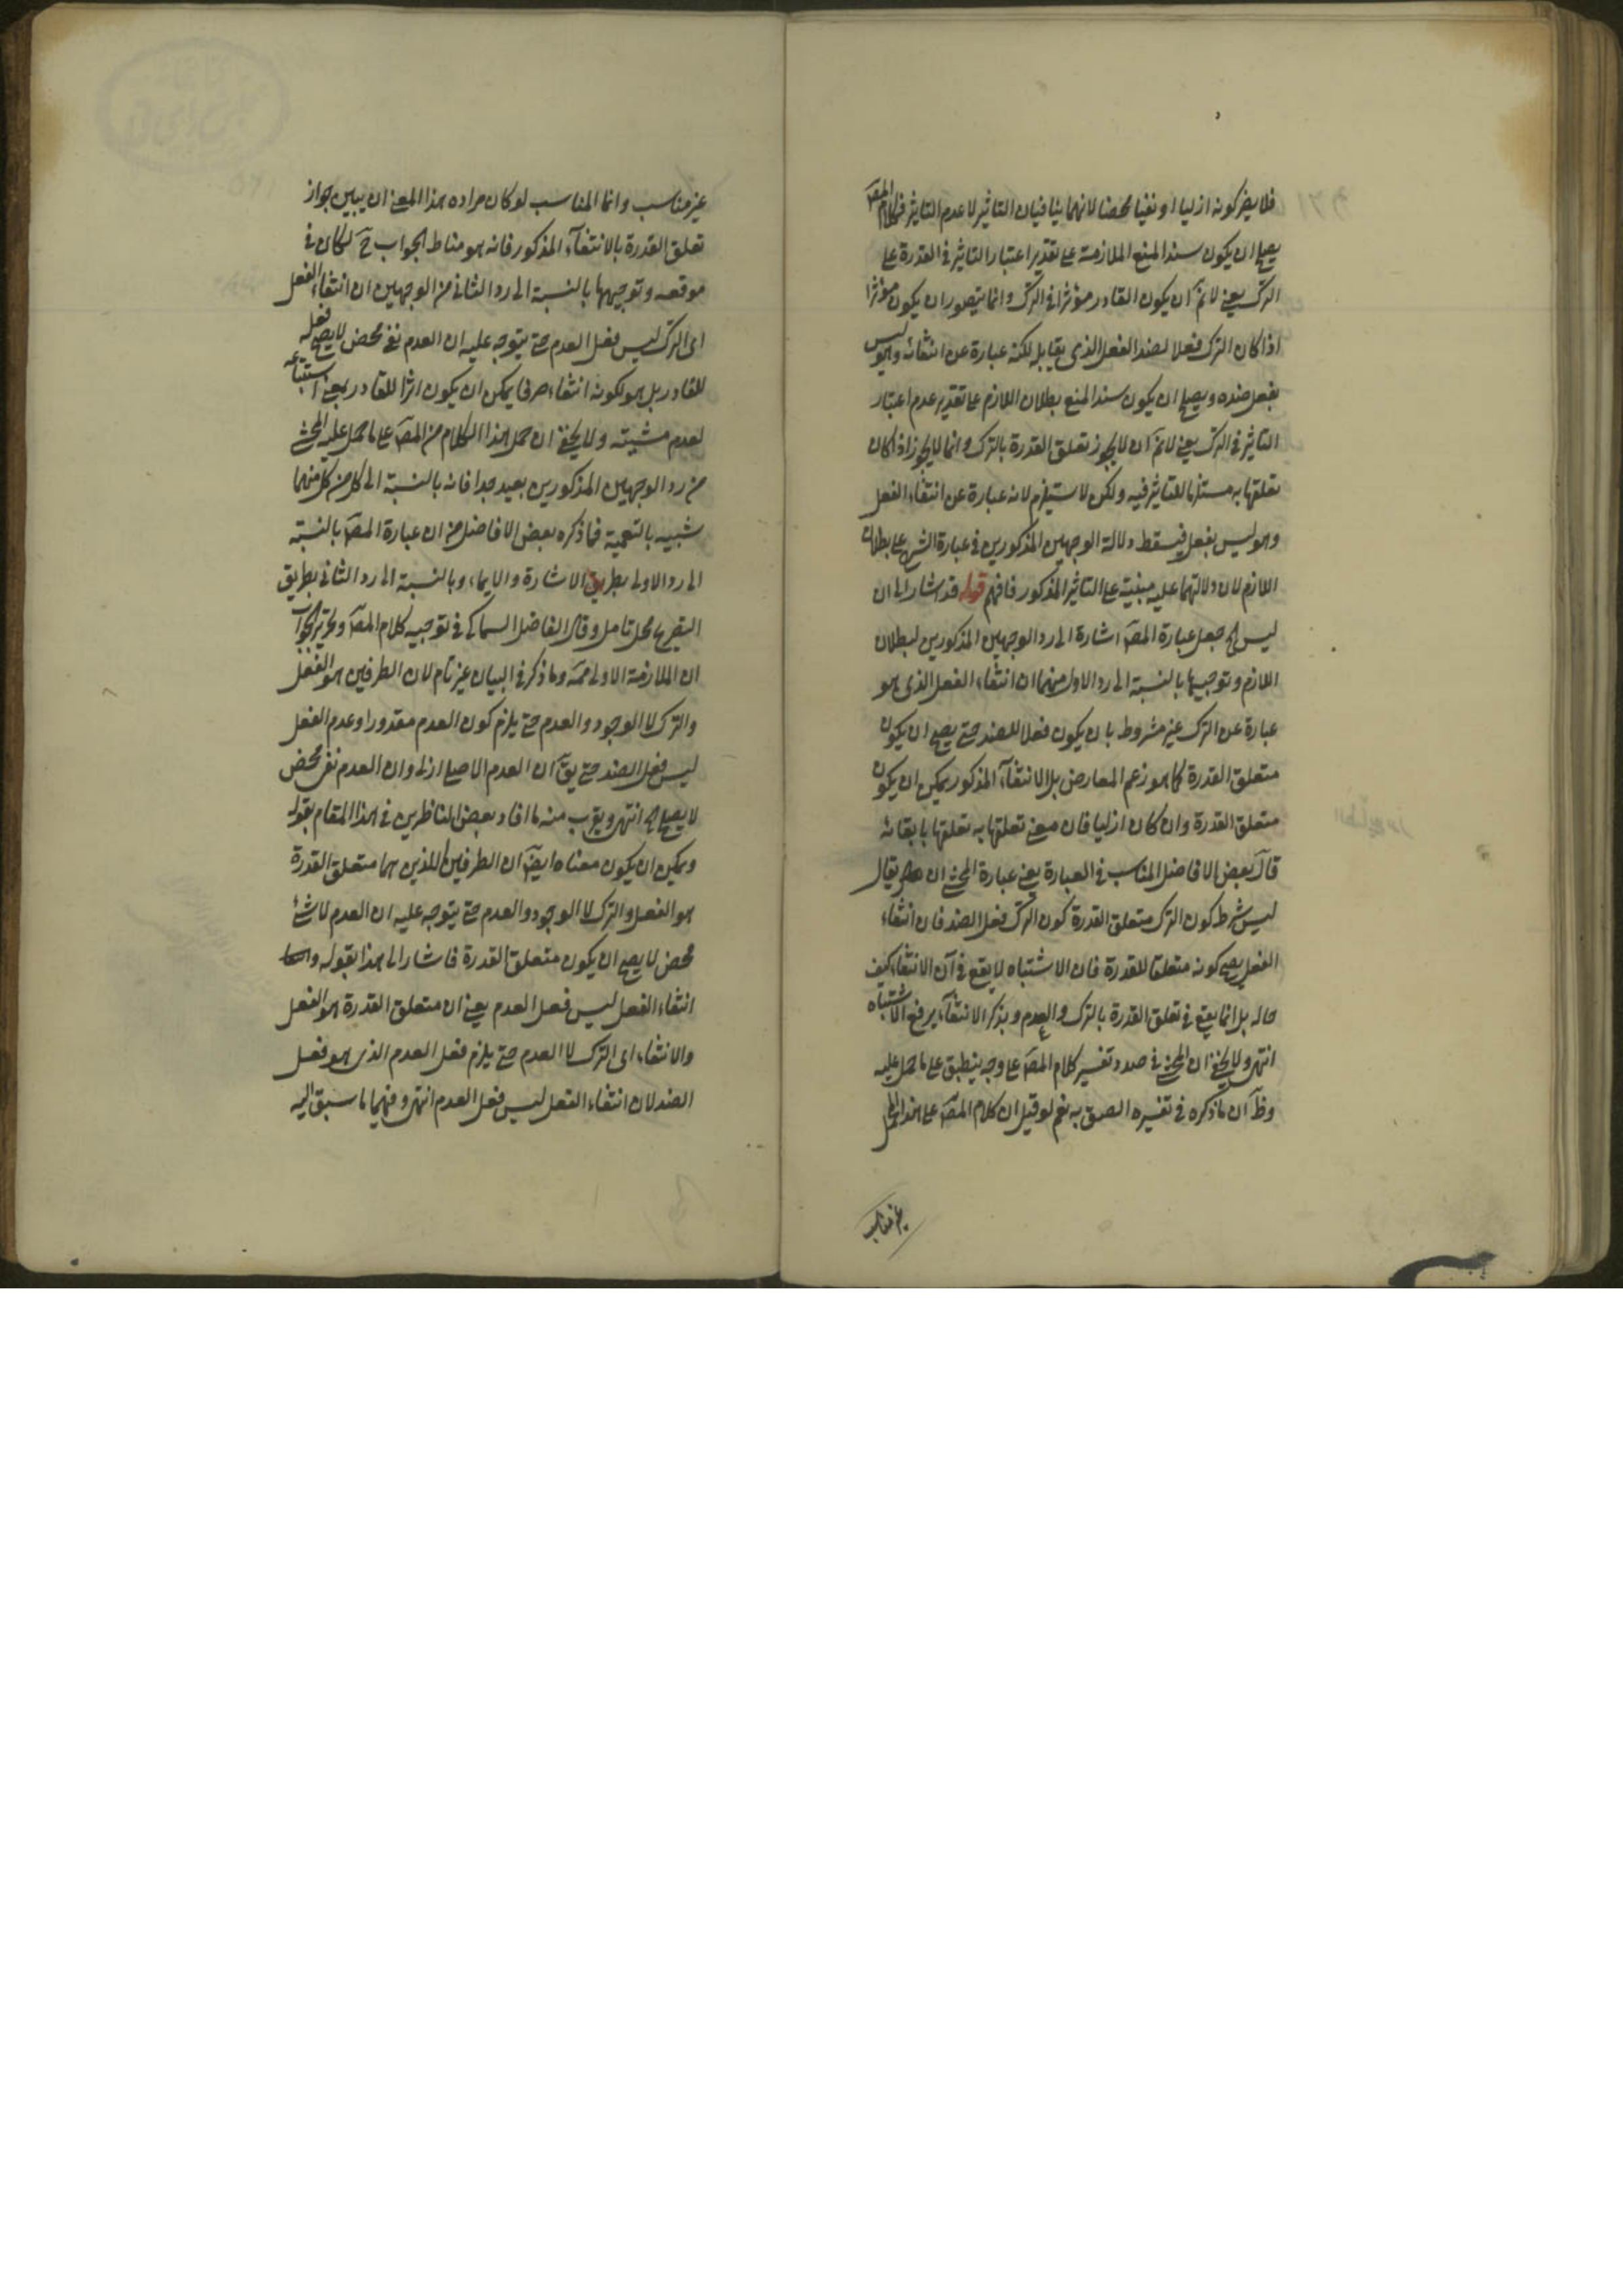 فلا يضر كونه ازليا او نفيا محضا لانهما ينافيان التاثير لا عدم التاثير فكلام المصَ
يصلح ان يكون سند المنع الملازمة على تقدير اعتبار التاثير في القدرة على
الترك يعنى لا نمَ ان يكون القادر مؤثرا في الترك وانما يتصور ان يكون مؤثرا
اذا كان الترك فعلا لضد الفعل الذى يقابله لكنه عبارة عن انتفائه وهو ليس
بفعل ضده ويصلح ان يكون سند المنع بطلان اللازم على تقدير عدم اعتبار
التاثير في الترك يعنى لا نمَ ان لا يجوز تعلق القدرة بالترك وانما لا يجوز اذا كان
تعلقها به مستلزما للتاثير فيه ولكن لا يستلزم لانه عبارة عن انتفاء الفعل
وهو ليس بفعل فيسقط دلالة الوجهين المذكورين في عبارة الشرح على بطلان
اللازم لان دلالتهما عليه مبنية على التاثير المذكور فافهم قوله قد اشار الى ان
ليس الخ جعل عبارة المصَ اشارة الى رد الوجهين المذكورين لبطلان
اللازم وتوجيهها بالنسبة الى رد الاول منهما ان انتفاء الفعل الذى هو
عبارة عن الترك غير مشروط بان يكون فعلا للضد حتى يصح ان يكون
متعلق القدرة كما هو زعم المعارض بل الانتفاء المذكور يمكن ان يكون
متعلق القدرة وان كان ازليا فان معنى تعلقها به تعلقها بابقائه
قال بعض الافاضل المناسب في العبارة يعنى عبارة المحشى ان يقال
ليس شرط كون الترك متعلق القدرة كون الترك فعل الضد فان انتفاء
الفعل يصح كونه متعلقا للقدرة فان الاشتباه لا يقع في آن الانتفاء كيف
حاله بل انما يقع في تعلق القدرة بالترك والعدم وبذكر الانتفاء يرفع الاشتباه
انتهى ولا يخفى ان المحشى في صدد تفسير كلام المصَ على وجه ينطبق على ما حمل عليه
وظَ ان ما ذكره في تفسيره الصق به نعم لو قيل ان كلام المصَ على هذا الحمل
غير مناسب
غير مناسب وانما المناسب لو كان مراده هذا المعنى ان يبين جواز
تعلق القدرة بالانتفاء المذكور فانه هو مناط الجواب حَ لكان في
موقعه وتوجيهها بالنسبة الى رد الثانى من الوجهين ان انتفاء الفعل
اى الترك ليس فعل العدم حتى يتوجه عليه ان العدم نفى محض لا يصح فعله
للقادر بل هو لكونه انتفاء صرفا يمكن ان يكون اثرا للقادر بمعنى استتباعه
لعدم مشيته ولا يخفى ان حمل هذا الكلام من المصَ على ما حمل عليه المحشى
من رد الوجهين المذكورين بعيد جدا فانه بالنسبة الى كل من كل منهما
شبيه بالتعمية فما ذكره بعض الافاضل من ان عبارة المصَ بالنسبة
الى رد الاول بطريق الاشارة والايماء وبالنسبة الى رد الثانى بطريق
التصريح محل تامل وقال الفاضل السماكى في توجيه كلام المصَ وتحرير الجواب
ان الملازمة الاولى ممَه وما ذكر في البيان غير تام لان الطرفين هو الفعل
والترك لا الوجود والعدم حتى يلزم كون العدم مقدورا وعدم الفعل
ليس فعل الضد حتى يقَ ان العدم الاصلى ازلى وان العدم نفى محض
لا يصلح الخ انتهى ويقرب منه ما افاد بعض الناظرين في هذا المقام بقوله
ويمكن ان يكون معناه ايضَ ان الطرفين اللذين هما متعلق القدرة
هو الفعل والترك لا الوجود والعدم حتى يتوجه عليه ان العدم لا شئ
محض لا يصح ان يكون متعلق القدرة فاشار الى هذا بقوله و
انتفاء الفعل ليس فعل العدم يعنى ان متعلق القدرة هو الفعل
والانتفاء اى الترك لا العدم حتى يلزم فعل العدم الذى هو فعل
الضد لان انتفاء الفعل ليس فعل العدم انتهى وفيهما ما سبق اليه